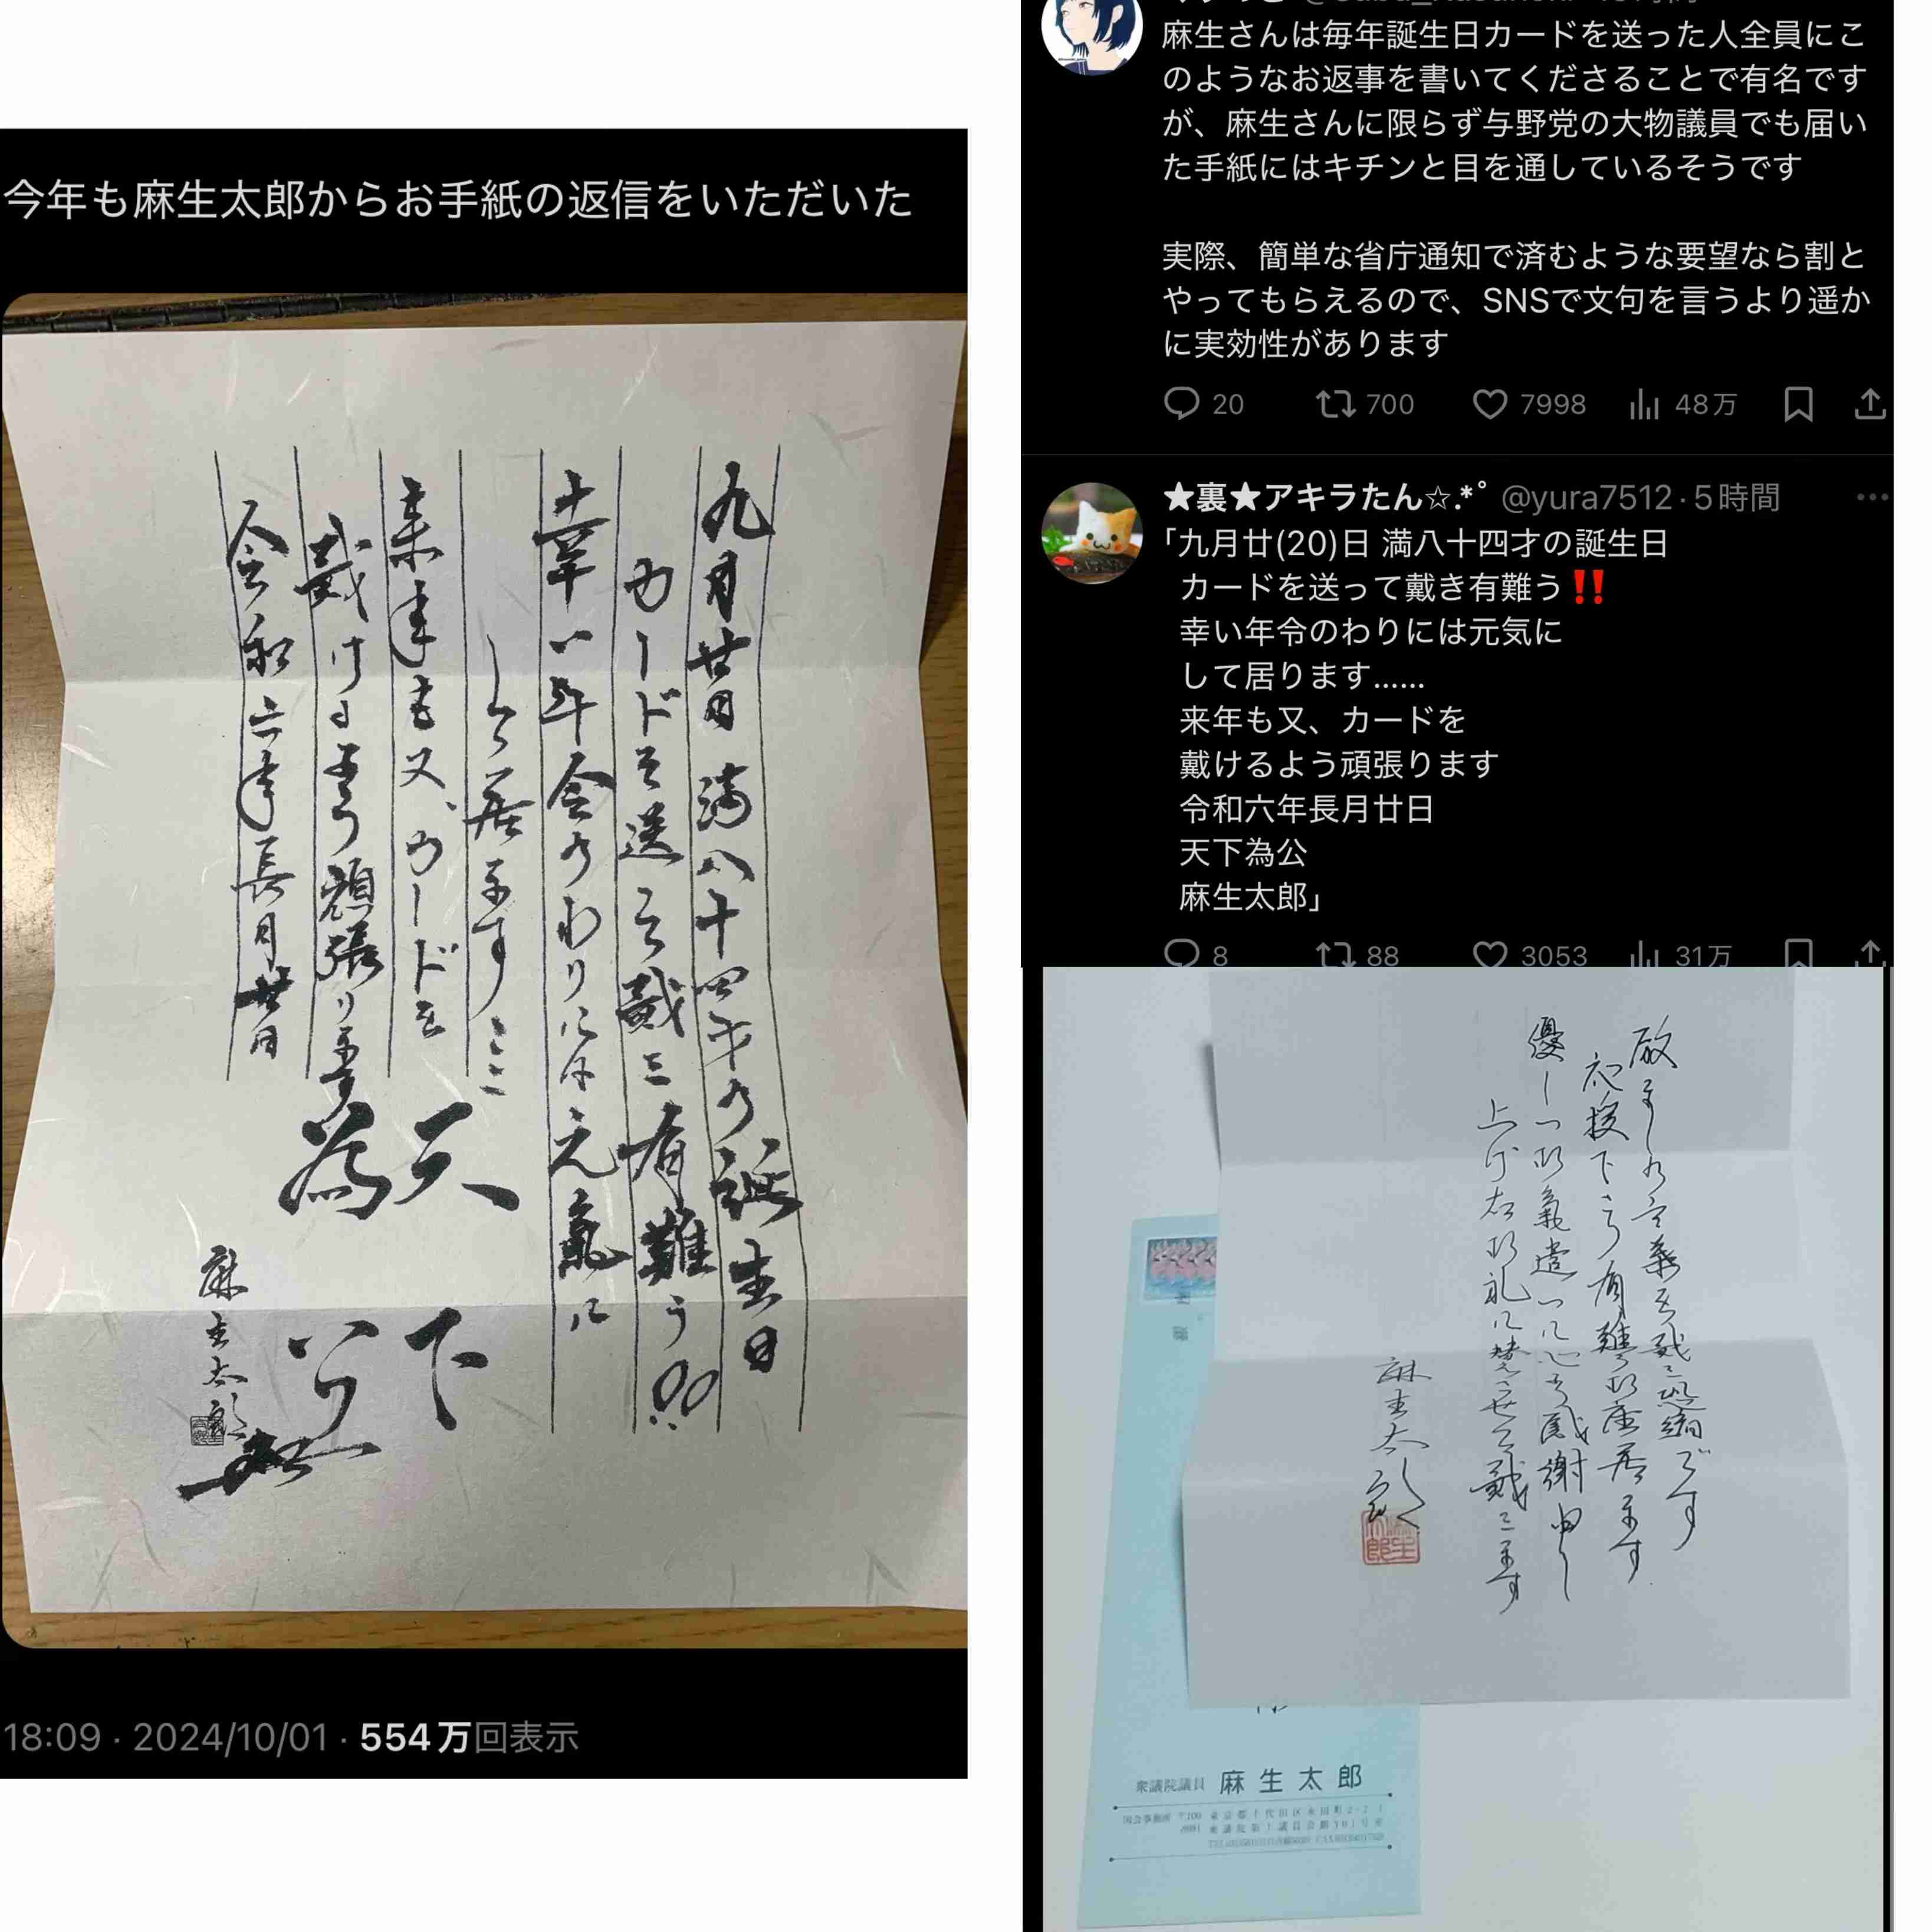 今年も麻生太郎からお手紙の返信をいただいた
九月廿日 満八十四才の誕生日
カードを送って戴き有難う!!
幸い年令のわりには元氣に
して居ります……
来年も又、カードを
戴けるよう頑張ります
令和六年長月廿日
天下
為公
麻生太郎
18:09 · 2024/10/01 · 554万回表示
麻生さんは毎年誕生日カードを送った人全員にこ
のようなお返事を書いてくださることで有名です
が、麻生さんに限らず与野党の大物議員でも届い
た手紙にはキチンと目を通しているそうです
実際、簡単な省庁通知で済むような要望なら割と
やってもらえるので、SNSで文句を言うより遥か
に実効性があります
20 700 7998 48万
★裏★アキラたん☆.*ﾟ @yura7512 · 5時間
「九月廿(20)日 満八十四才の誕生日
カードを送って戴き有難う‼️
幸い年令のわりには元気に
して居ります……
来年も又、カードを
戴けるよう頑張ります
令和六年長月廿日
天下為公
麻生太郎」
8 88 3053 31万
応援下さり有難う御座居ます
優しい御氣遣いに心より感謝申し
上げ右御礼に替えさせて戴きます
麻生太郎
衆議院議員 麻生太郎